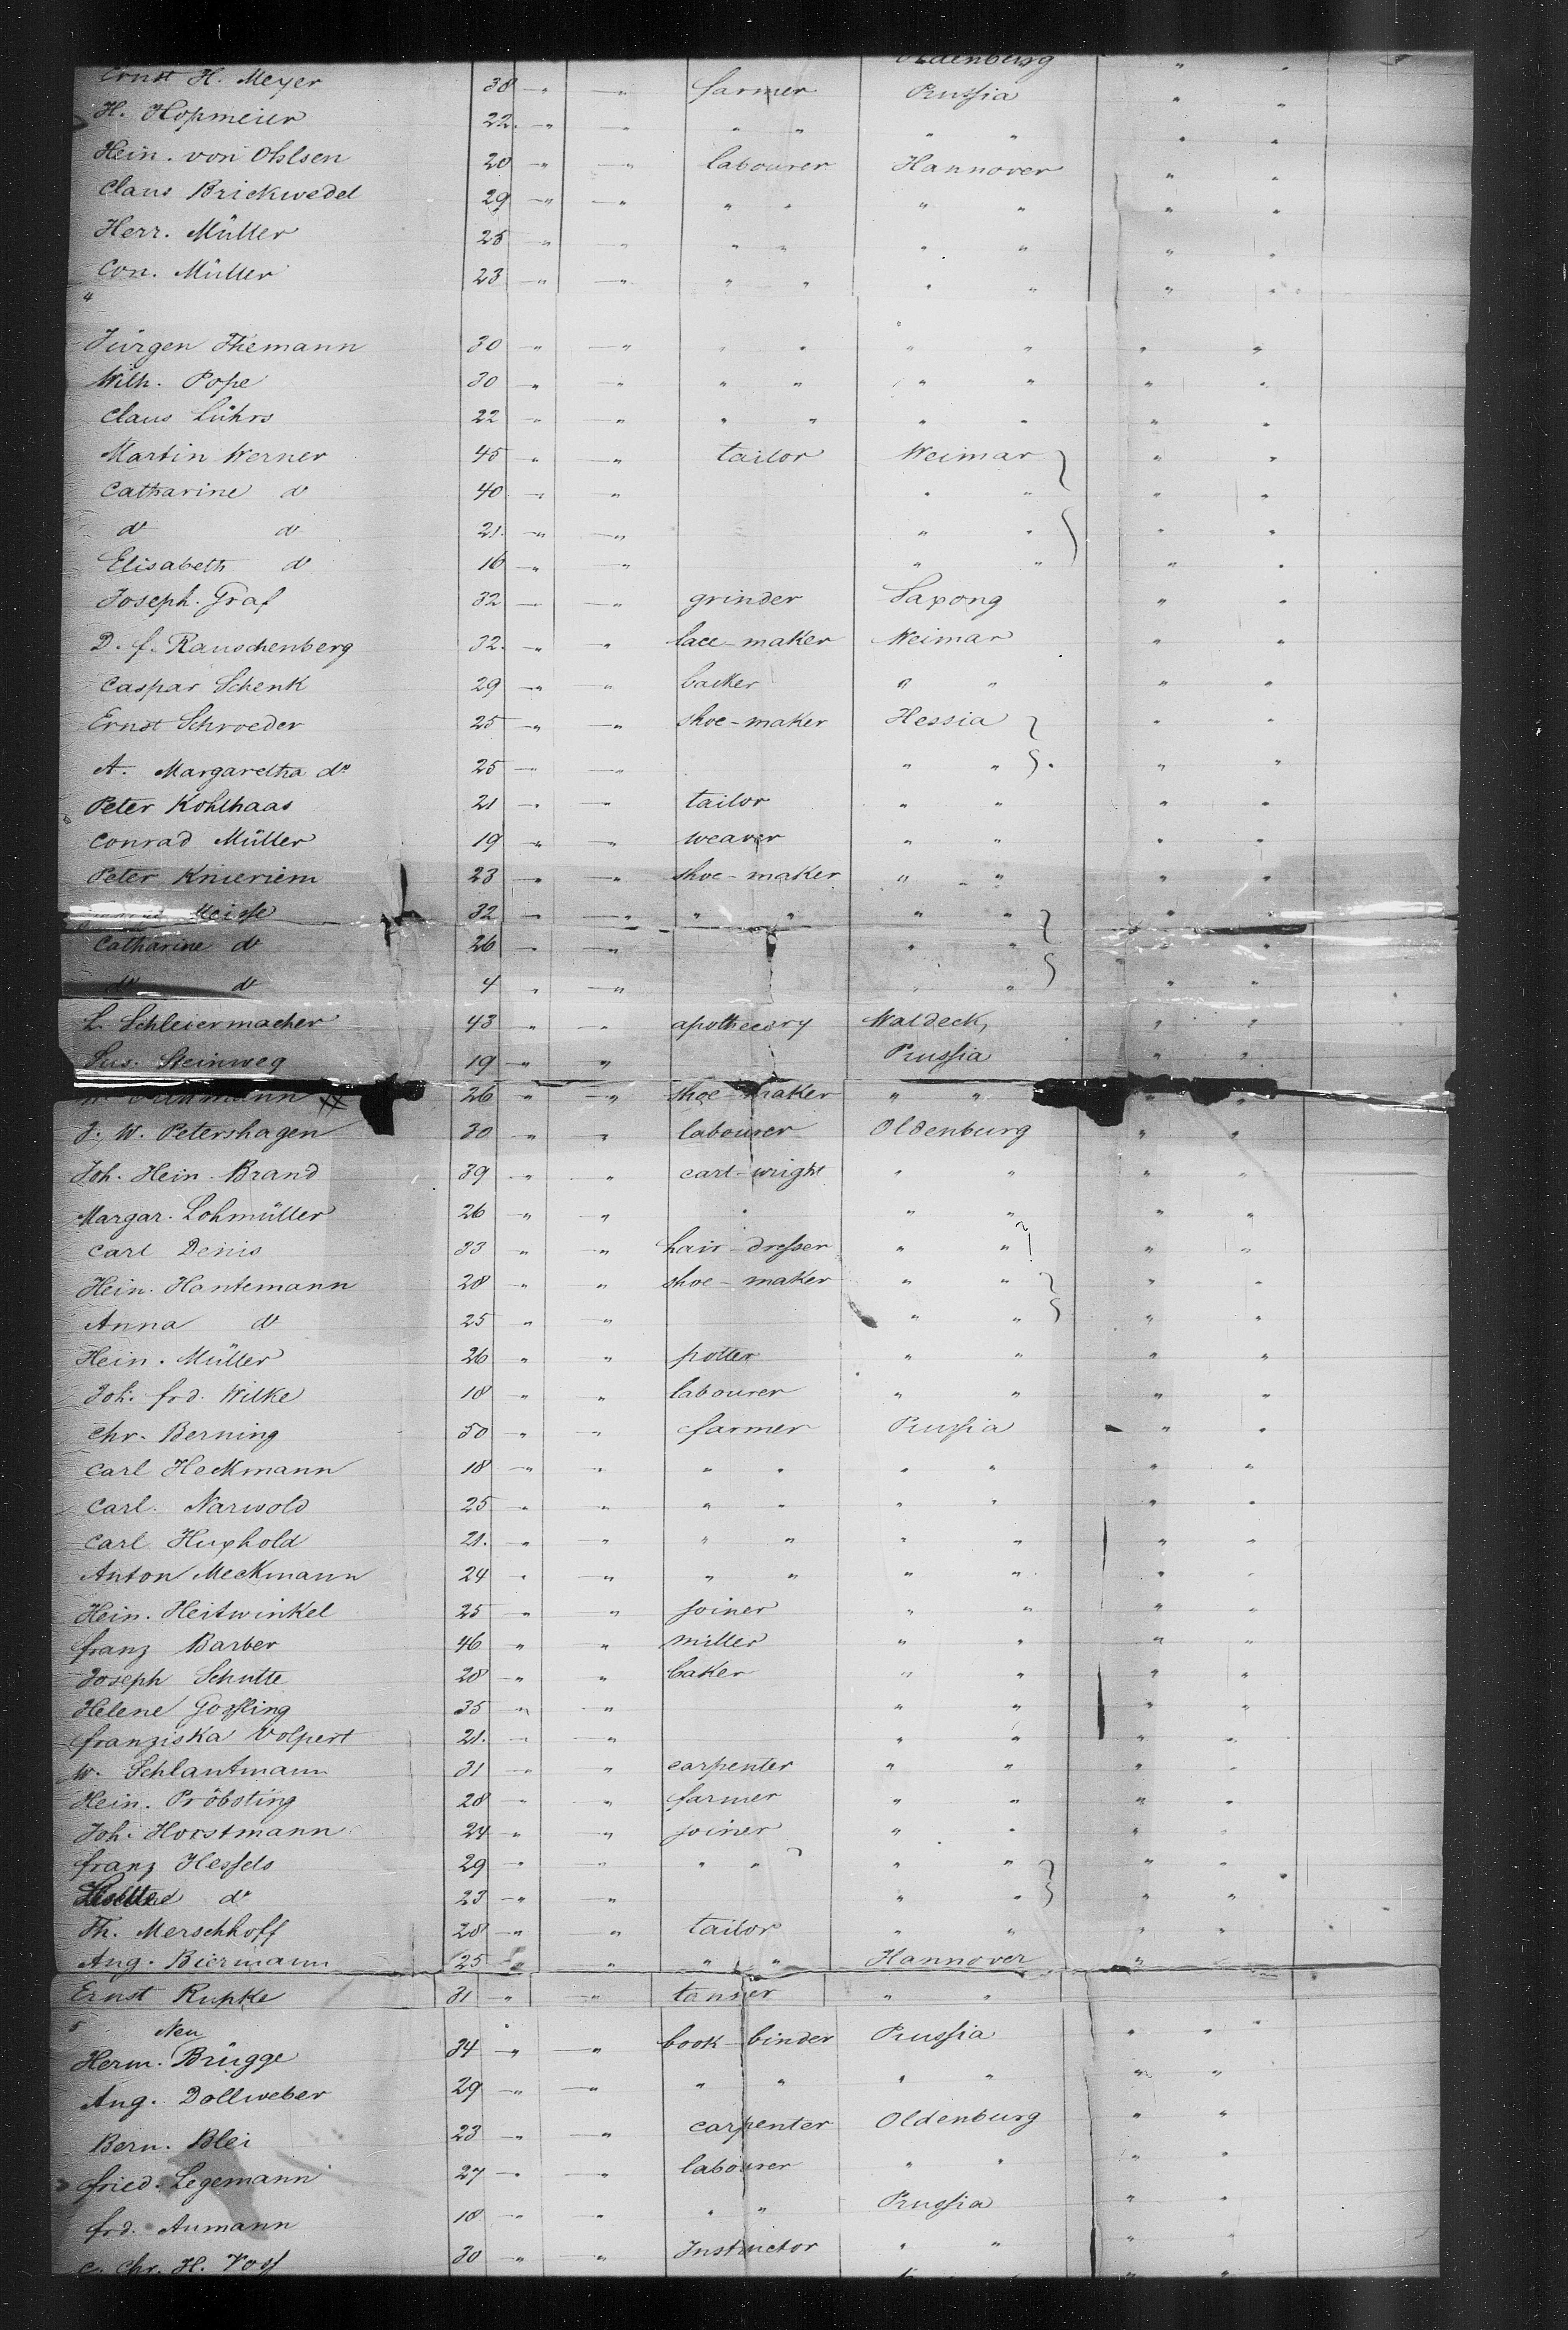 Oldenburg " "
Ernst H. Meyer 38 " " farmer Prussia " "
H. Hopmeier 22. " " " " " " " "
Hein. von Ohlsen 20 " " labourer Hannover " "
Claus Brickwedel 29 " " " " " " " "
Herr. Müller 25 " " " " " " " "
Con. Müller 23 " " " " " " " "
4
Jürgen Thiemann 30 " " " " " " " "
Wilh. Pope 30 " " " " " " " "
Claus Lührs 22 " " " " " " " "
Martin Werner 45 " " tailor Weimar " "
Catharine do 40 " " " " " "
do do 21. " " " " " "
Elisabeth do 16 " " " " " "
Joseph. Graf 32 " " grinder Saxony " "
D. f. Rauschenberg 32. " " lace-maker Weimar " "
Caspar Schenk 29 " " backer " " " "
Ernst Schroeder 25 " " shoe-maker Hessia " "
A. Margaretha do 25 " " " " " "
Peter Kohlhaas 21 " " tailor " " " "
Conrad Müller 19 " " weaver " " " "
Peter Knieriem 23 " " shoe-maker " " " "
Meisse 32 " " " " " " " "
Catharine do 26 " " " " " "
do do 4 " " " " " "
L. Schleiermacher 43 " " apothecary Waldeck, " "
Sus. Steinweg 19 " " Prussia " "
26 " " shoe-maker " " " "
J. W. Petershagen 30 " " labourer Oldenburg " "
Joh. Hein. Brand 39 " " cart-wright " " " "
Margar. Lohmüller 26 " " " " " "
Carl Denis 33 " " hair-dresser " " " "
Hein. Hantemann 28 " " shoe-maker " " " "
Anna do 25 " " " " " "
Hein. Müller 26 " " potter " " " "
Joh. frd. Wilke 18 " " labourer " " " "
Chr. Berning 50 " " farmer Prussia " "
Carl Heckmann 18 " " " " " " " "
Carl. Narwold 25 " " " " " " " "
Carl Huxhold 21. " " " " " " " "
Anton Meckmann 24 " " " " " " " "
Hein. Heitwinkel 25 " " joiner " " " "
franz Barber 46 " " miller " " " "
Joseph Schutte 28 " " baker " " " "
Helene Gossling 35 " " " " " "
franziska Volpert 21. " " " " " "
W. Schlautmann 31 " " carpenter " " " "
Hein. Pröbsting 28 " " farmer " " " "
Joh. Horstmann 24 " " joiner " " " "
franz Hessels 29 " " " " " " " "
do 23 " " " " " "
Th. Merschhoff 28 " " tailor " " " "
Aug. Biermann 25 " " " " Hannover "
Ernst Rupke 31 " " tanner " "
5 Neu
Herm. Brügge 34 " " book-binder Prussia " "
Aug. Dollweber 29 " " " " " " " "
Bern. Blei 23 " " carpenter Oldenburg " "
fried. Legemann 27 " " labourer " " " "
frd. Aumann 18 " " " " Prussia " "
C. Chr. H. Voss 30 " " Instructor " " " "